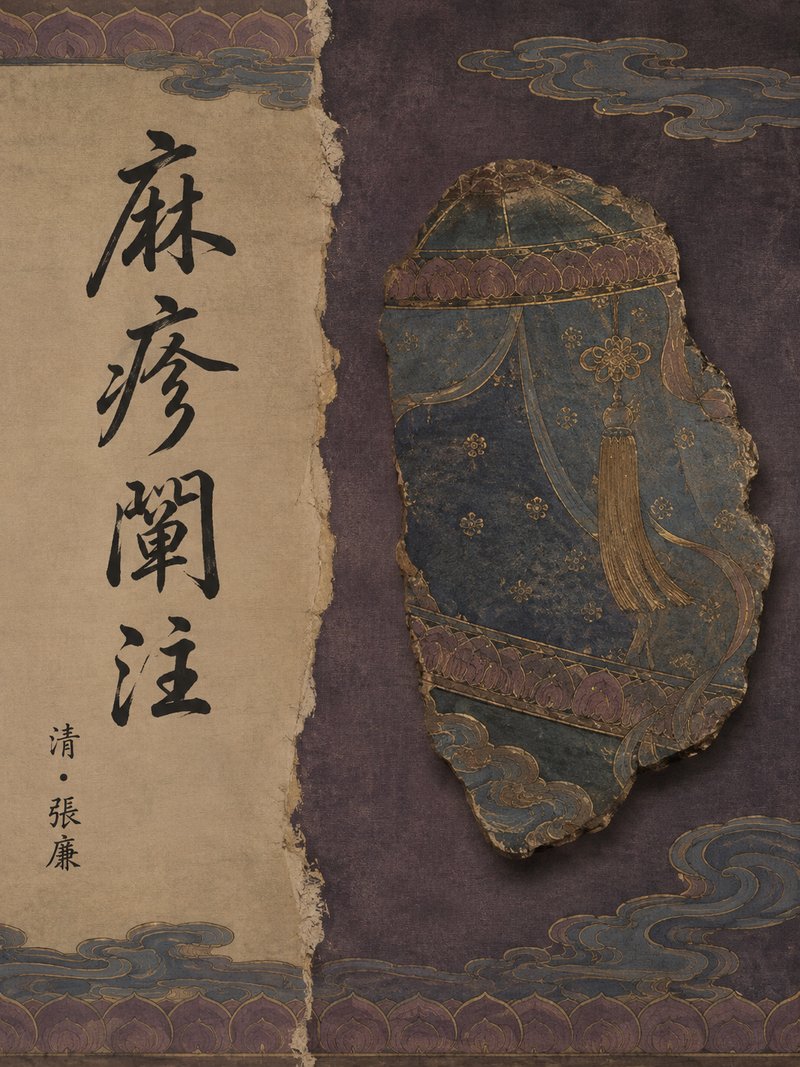 麻疹闡注
清·張廉